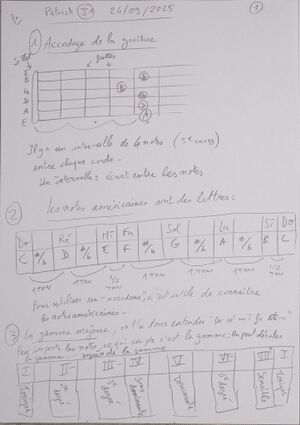 Patrick J1 26/09/2025 1
1) Accordage de la guitare
Sillet frettes
E
B
G
D
A
E
B E G D A
Il y a un intervalle de 4 notes (5e cases)
entre chaque corde.
Un intervalle : écart entre les notes.
2 les notes américaines sont des lettres :
Do Ré Mi Fa Sol La Si Do
C #/b D #/b E F #/b G #/b A #/b B C
1 TON 1 TON 1/2 TON 1 TON 1 TON 1 TON 1/2 TON
Pour utiliser un "accordeur", il est utile de connaître
les notes américaines.
3 La gamme majeure, on l'a tous entendu "Do ré mi fa
Peu importe les notes, ce qui compte c'est la gamme. On peut décaler
la gamme
I II III IV V VI VII I
Tonique 2e degré 3e degré Sous dominante Dominante 6e degré Sensible Tonique